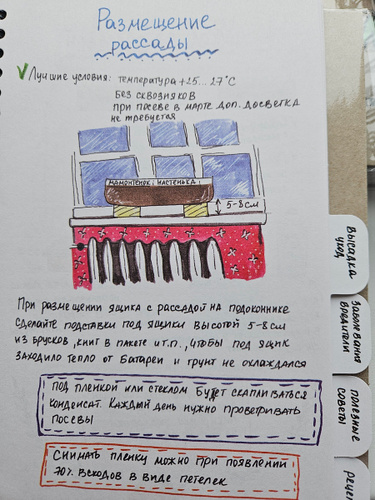 Размещение
рассады
Лучшие условия: температура +25... 27°С
без сквозняков
при посеве в марте доп. досветка
не требуется
Мамонтёнок. Настенька
5-8 см
При размещении ящика с рассадой на подоконнике
сделайте подставки под ящики высотой 5-8 см
из брусков, книг в пакете и т.п., чтобы под ящик
заходило тепло от батареи и грунт не охлаждался
Под пленкой или стеклом будет скапливаться
конденсат. Каждый день нужно проветривать
посевы
Снимать пленку можно при появлении
70% всходов в виде петелек
высадка
уход
заболевания
вредители
полезные
советы